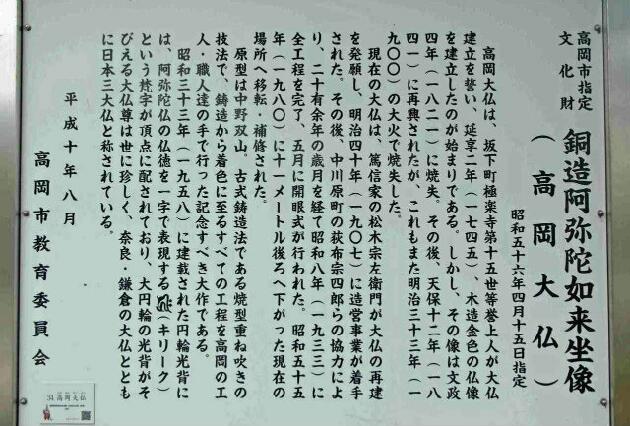 高岡市指定
文化財
銅造阿弥陀如来坐像
（高岡大仏）
昭和五十六年四月十五日指定
高岡大仏は、坂下町極楽寺第十五世等誉上人が大仏
建立を誓い、延享二年（一七四五）、木造金色の仏像
を建立したのが始まりである。しかし、その像は文政
四年（一八二一）に焼失。その後、天保十二年（一八
四一）に再興されたが、これもまた明治三十三年（一
九〇〇）の大火で焼失した。
現在の大仏は、篤信家の松木宗左衛門が大仏の再建
を発願し、明治四十年（一九〇七）に造営事業が着手
された。その後、中川原町の荻布宗四郎らの協力によ
り、二十有余年の歳月を経て昭和八年（一九三三）に
全工程を完了、五月に開眼式が行われた。昭和五十五
年（一九八〇）に十一メートル後ろへ下がった現在の
場所へ移転・補修された。
原型は中野双山。古式鋳造法である焼型重ね吹きの
技法で、鋳造から着色に至るすべての工程を高岡の工
人・職人達の手で行った記念すべき大作である。
昭和三十三年（一九五八）に建載された円輪光背に
は、阿弥陀仏の仏徳を一字で表現する（キリーク）
という梵字が頂点に配されており、大円輪の光背がそ
びえる大仏尊は世に珍しく、奈良・鎌倉の大仏ととも
に日本三大仏と称されている。
平成十年八月
高岡市教育委員会
34 高岡大仏